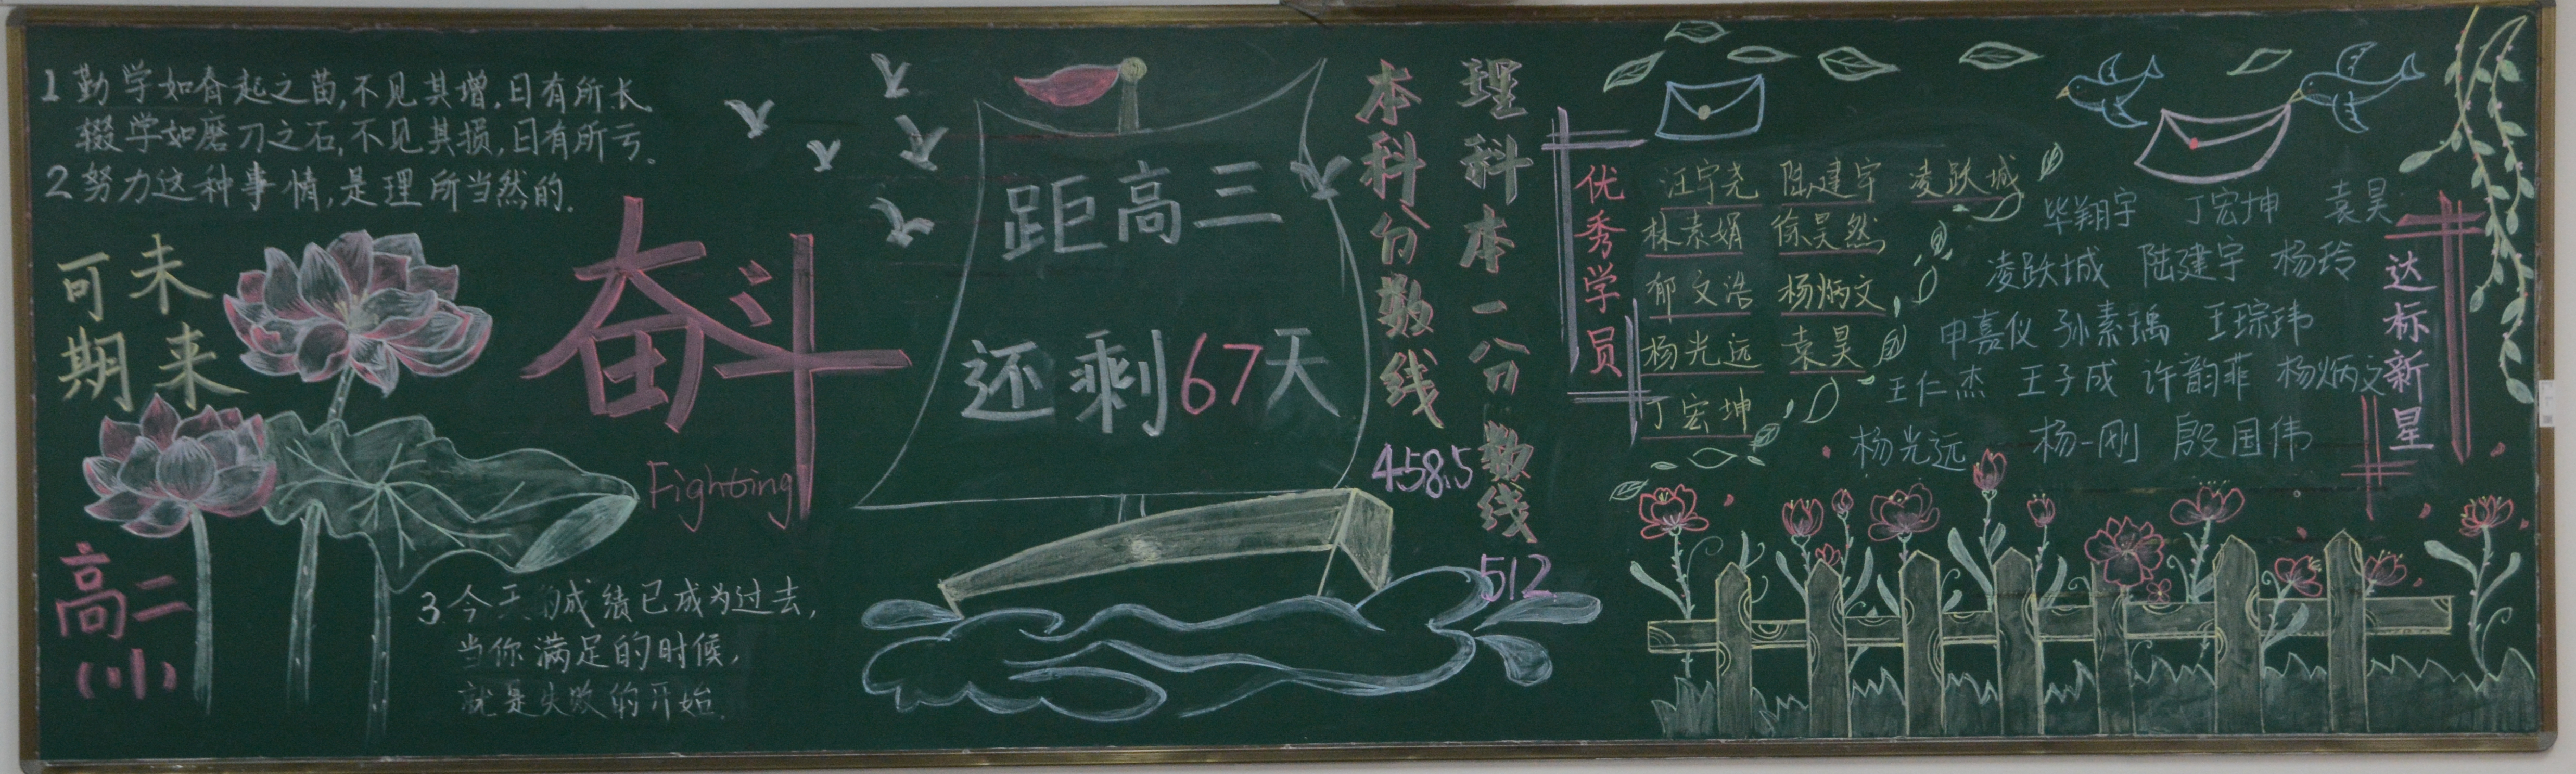 1 勤学如春起之苗,不见其增,日有所长
辍学如磨刀之石,不见其损,日有所亏.
2 努力这种事情,是理所当然的.
未来
可期
奋斗
Fighting
高二
(11)
3. 今天的成绩已成为过去,
当你满足的时候,
就是失败的开始.
距高三
还剩67天
理科本一分数线
512
本科分数线
458.5
优秀学员
汪宇尧 陆建宇 凌跃城
林素娟 徐昊然
郁文浩 杨炳文
杨光远 袁昊
丁宏坤
毕翔宇 丁宏坤 袁昊
凌跃城 陆建宇 杨玲
申嘉仪 孙素瑀 王琮玮
王仁杰 王子成 许韵菲 杨炳文
杨光远 杨一刚 殷国伟
达标新星